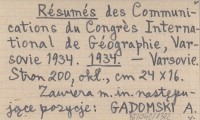 Résumés des Communi-
cations du Congrès Interna-
tional de Géographie, Var-
sovie 1934. 1934. — Varsovie.
Stron 200, okł., cm 24 × 16.
Zawiera m. in. następu-
jące pozycje: GADOMSKI A.